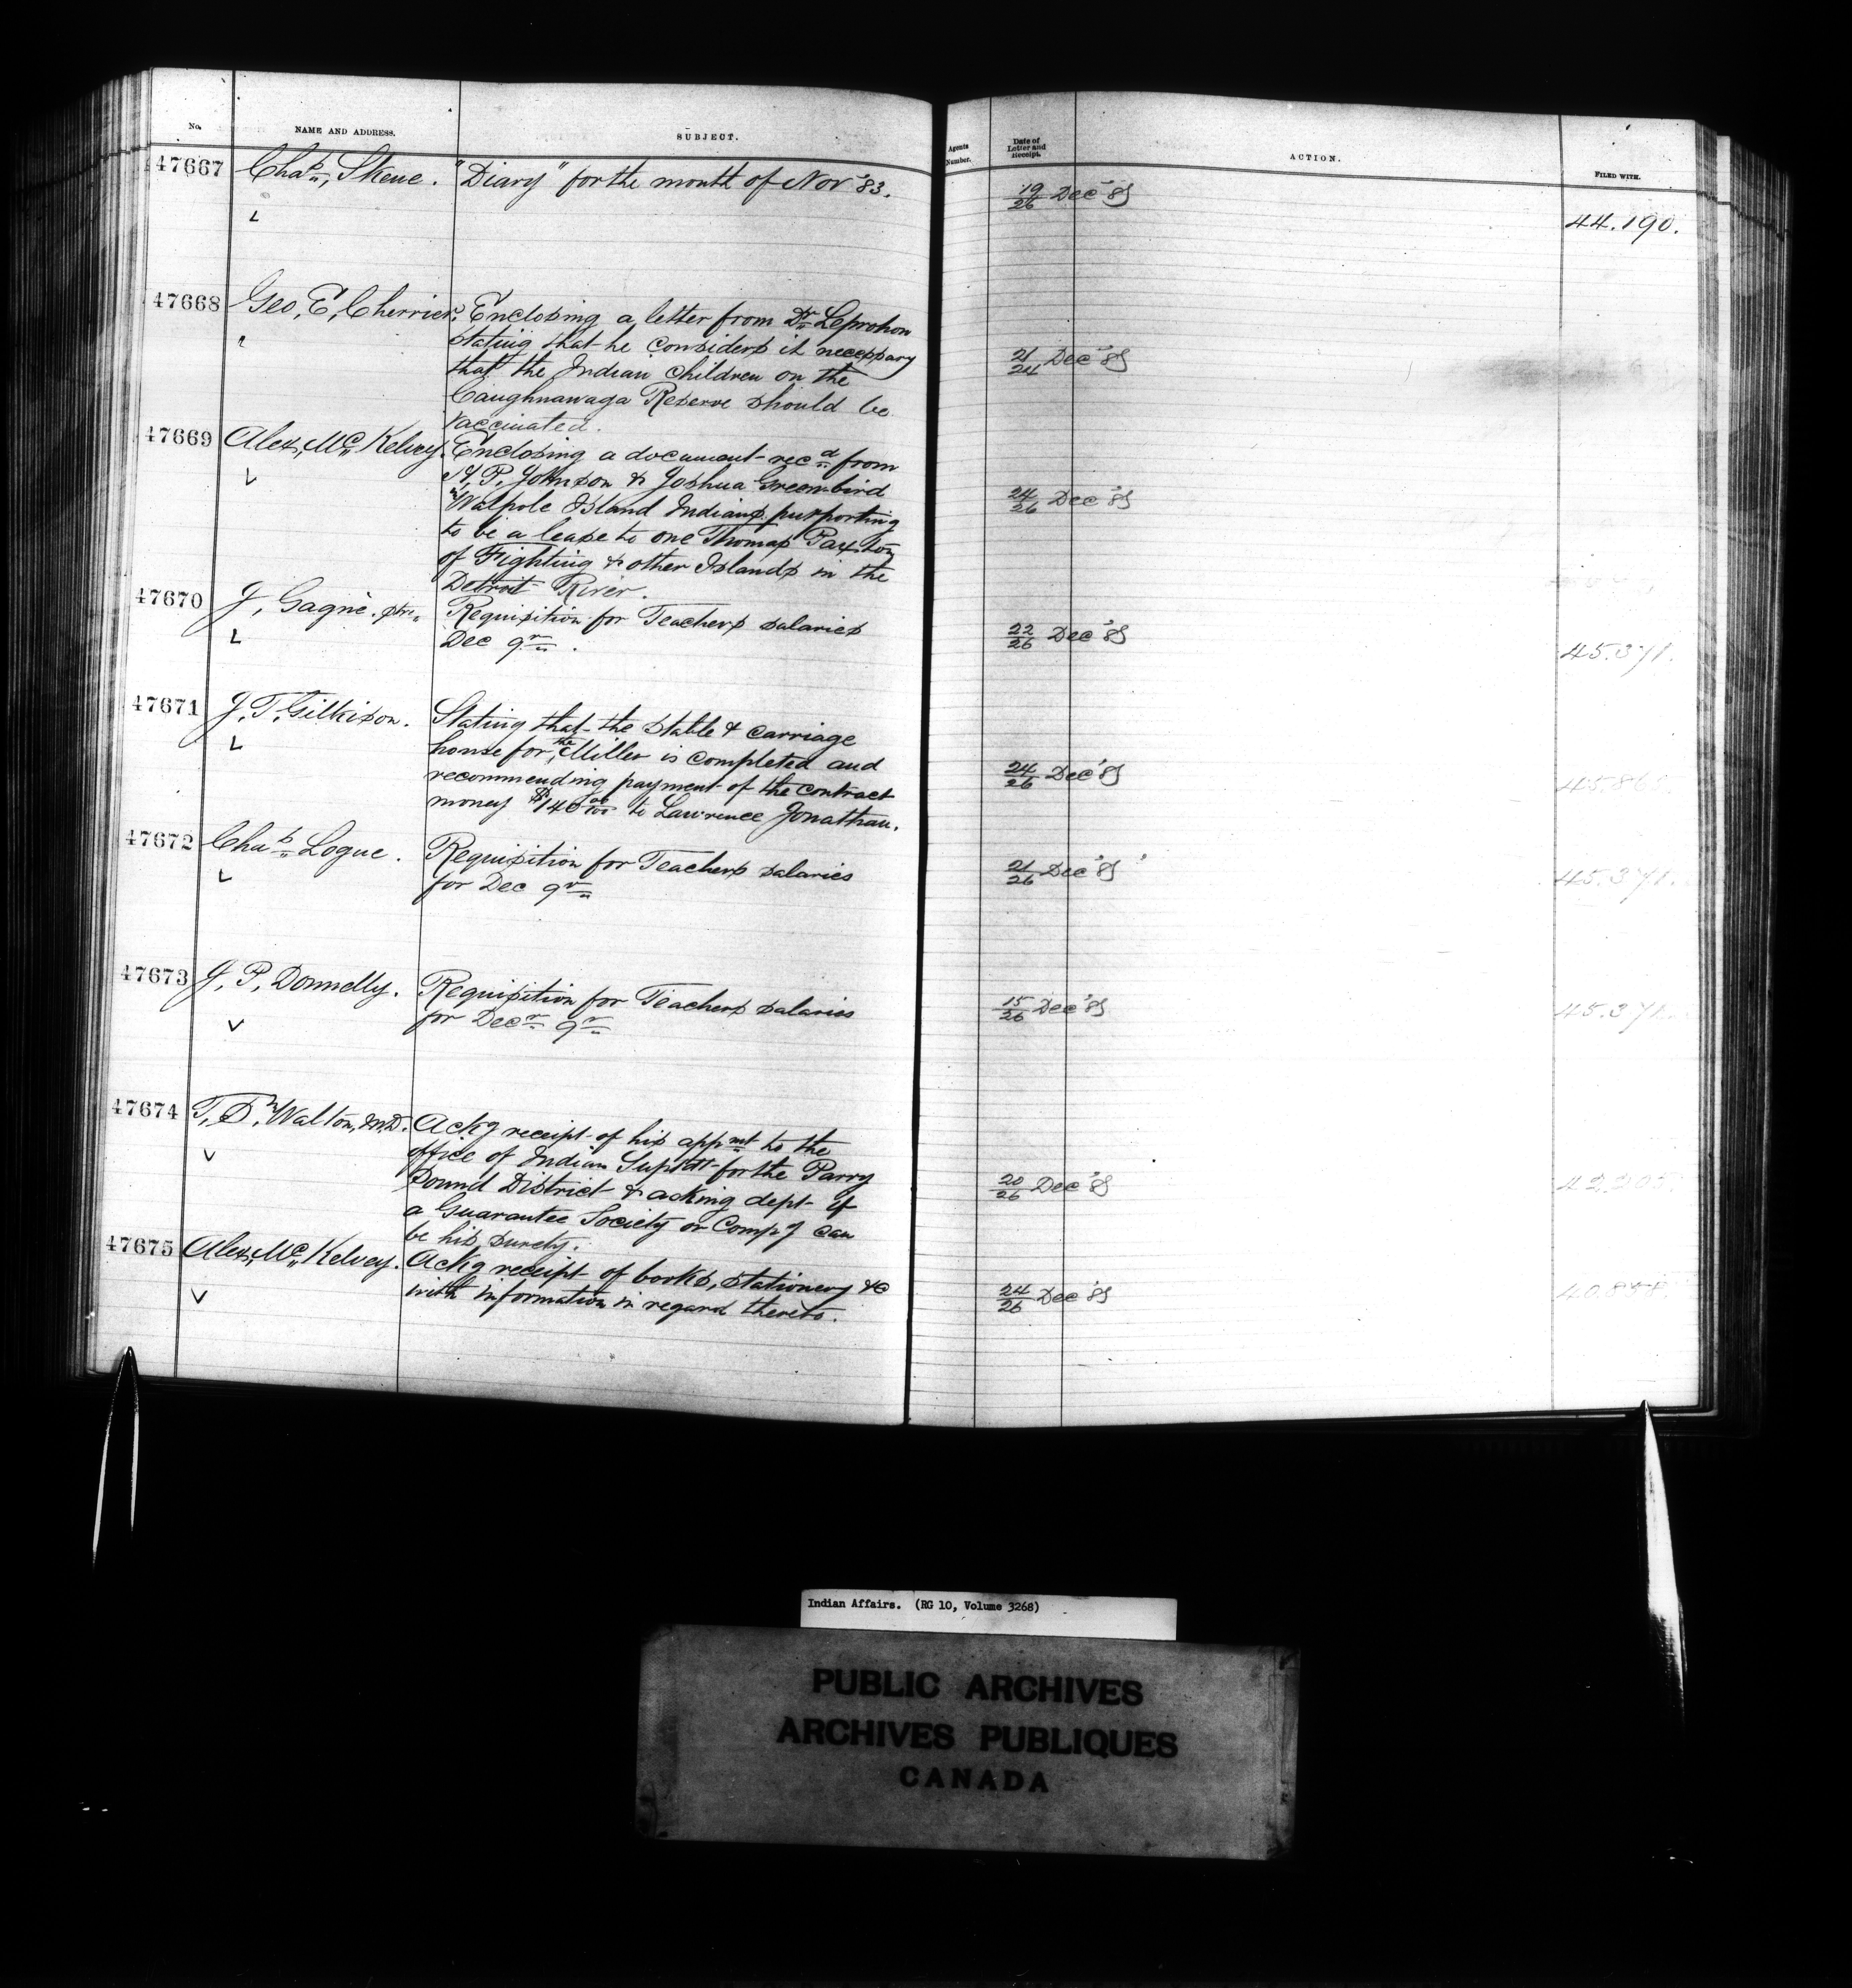 No. NAME AND ADDRESS. SUBJECT. Agents Number. Date of Letter and Receipt. ACTION. FILED WITH.
47667 Chas, Skene. "Diary" for the month of Nov '83. 19/26 Dec '83
44.190.
47668 Geo, E, Cherrier. Enclosing a letter from Dr Leprohon
stating that he considers it necessary 21/24 Dec '83
that the Indian children on the
Caughnawaga Reserve should be
vaccinated.
47669 Alex, Mc Kelvey. Enclosing a document recd from
P, Johnson & Joshua Greenbird 24/26 Dec '83
Walpole Island Indians purporting
to be a lease to one Thomas Paxton
of Fighting & other Islands in the
Detroit River.
47670 J, Gagnè. ptre. Requisition for Teachers salaries 22/26 Dec '83
Dec qr. 45.371.
47671 J, T, Gilkison. Stating that the stable & carriage
house for the Miller is completed and 24/26 Dec '83
recommending payment of the contract
money $140 00/100 to Lawrence Jonathan.
47672 Chas Logue. Requisition for Teachers salaries 21/26 Dec '83
for Dec qr 45.371.
47673 J, P, Donnelly. Requisition for Teachers salaries 15/26 Dec '83
for Decr qr 45.371.
47674 T, S, Walton, M.D. Ackg receipt of his appmt to the
office of Indian Suptdt for the Parry
Sound District & asking dept if 20/26 Dec '83
a Guarantee Society or Compy can
be his surety.
47675 Alex, Mc Kelvey. Ackg receipt of books, stationery &c
with information in regard thereto. 24/26 Dec '83
Indian Affairs. (RG 10, Volume 3268)
PUBLIC ARCHIVES
ARCHIVES PUBLIQUES
CANADA